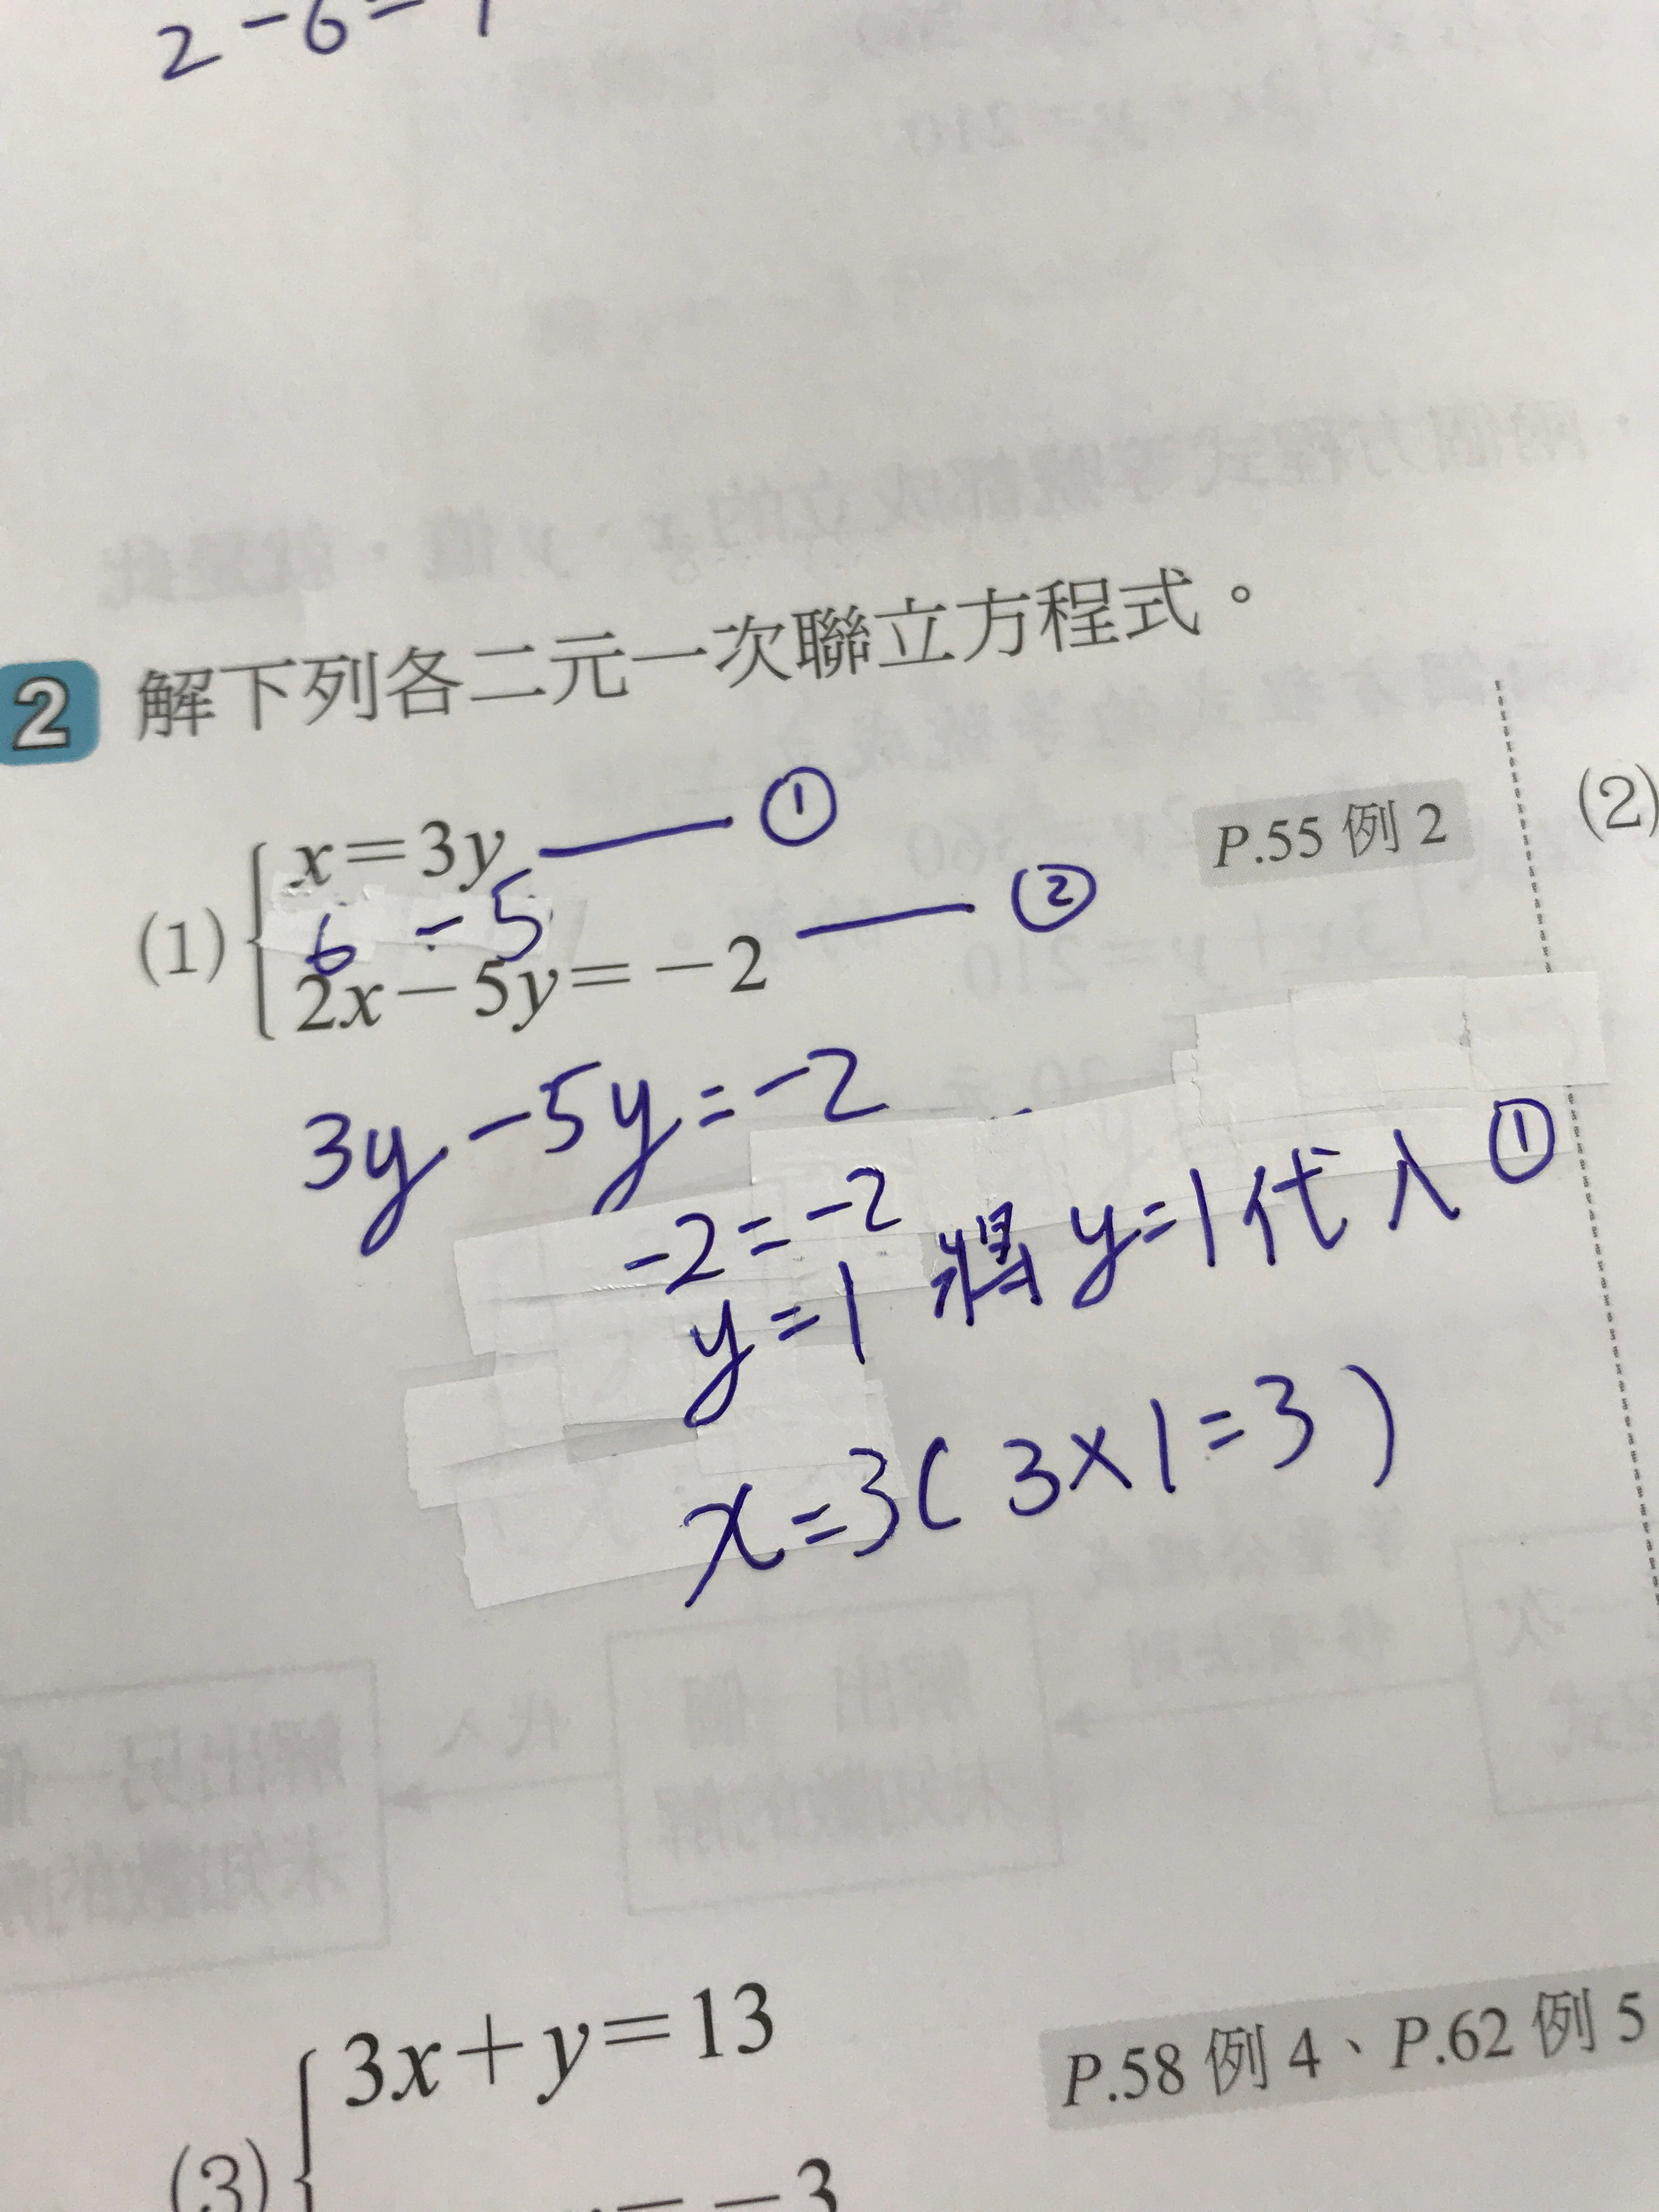 2-6=
2 解下列各二元一次聯立方程式。
(1) x=3y —— ① P.55 例 2 (2)
6 -5
2x-5y=-2 —— ②
3y-5y=-2
-2=-2
y=1 將y=1代入①
x=3(3×1=3)
3x+y=13 P.58 例 4、P.62 例 5
(3)
=-3